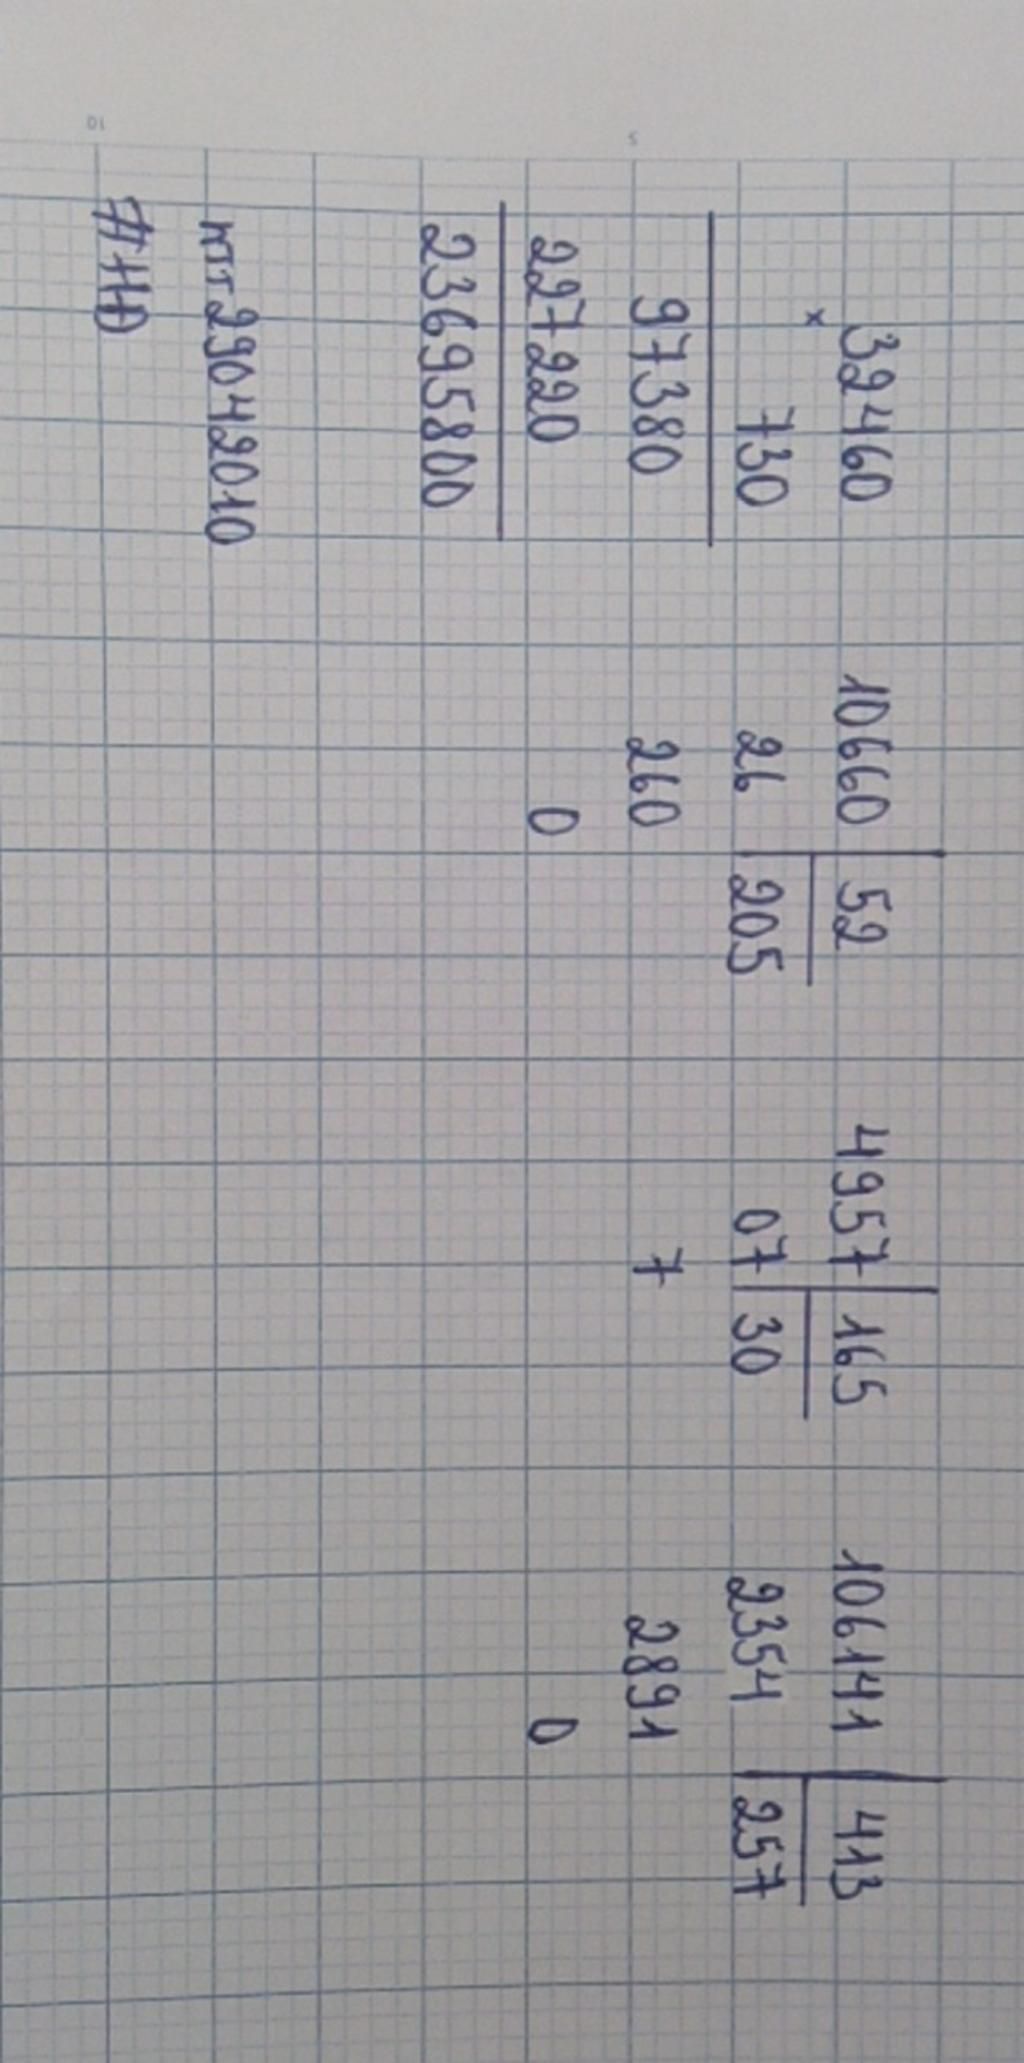 32460
× 730
97380
227220
23695800
10660 | 52
26 | 205
260
0
4957 | 165
07 | 30
7
106141 | 413
2354 | 257
2891
0
mπ29042010